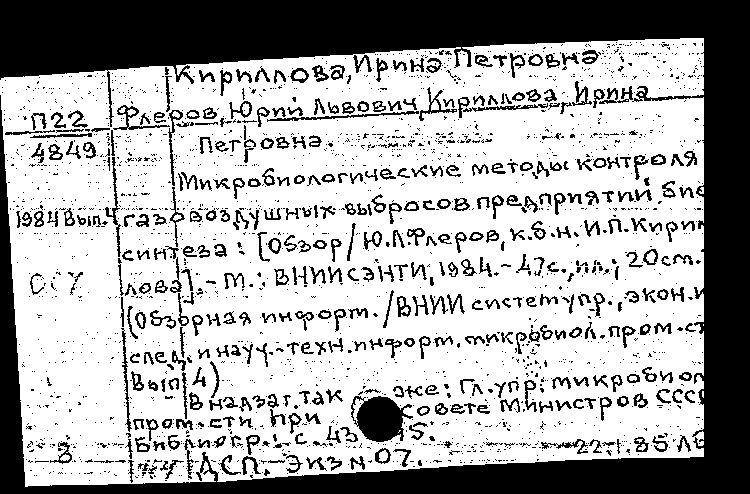 Кириллова, Ирина Петровна
П22 Флеров, Юрий Львович, Кириллова, Ирина
4849 Петровна.
Микробиологические методы контроля
1984 Вып.4 газовоздушных выбросов предприятий био
синтеза: [Обзор / Ю.Л.Флеров, к.б.н. И.П.Кирил
лова]. - М.: ВНИИСЭНТИ, 1984. - 47с., ил.; 20см. -
(Обзорная информ. / ВНИИ систем упр., экон. и
след. и науч.-техн. информ. микробиол. пром-ст
Вып. 4)
В надзаг. также: Гл. упр. микробиол
пром-сти при Совете Министров СССР
Библиогр.: с. 43
8 ДСП. Экз N 07. 22.1.85